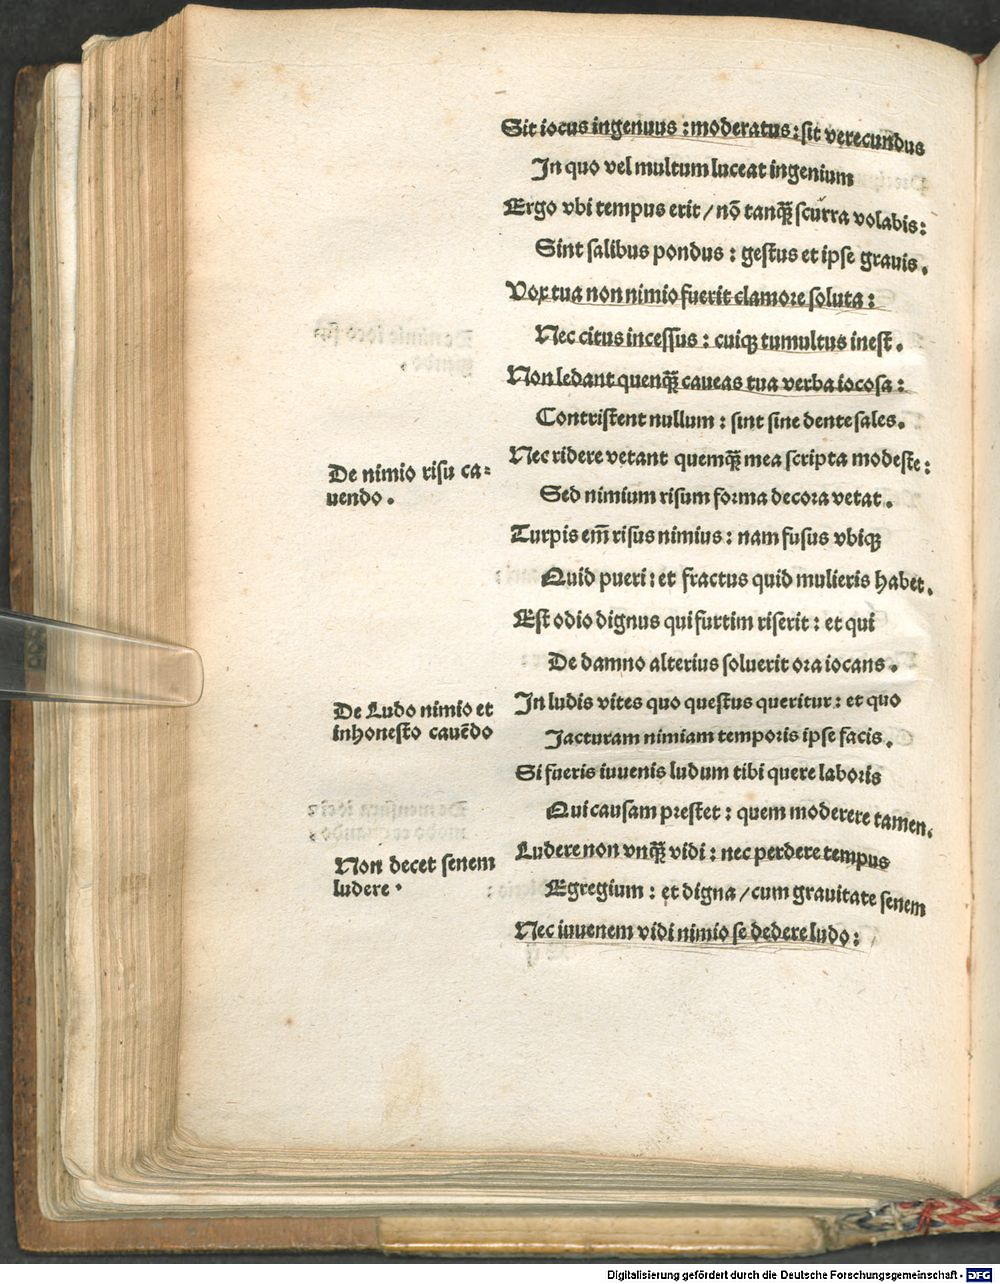 Sit iocus ingenuus : moderatus : sit verecundus
In quo vel multum luceat ingenium
Ergo vbi tempus erit / nō tanq̄ꝫ scurra volabis :
Sint salibus pondus : gestus et ipse grauis .
Vox tua non nimio fuerit clamore soluta :
Nec citus incessus : cuiqꝫ tumultus inest .
Non ledant quenq̄ꝫ caueas tua verba iocosa :
Contristent nullum : sint sine dente sales .
Nec ridere vetant quemq̄ꝫ mea scripta modeste :
De nimio risu ca=
uendo .
Sed nimium risum forma decora vetat .
Turpis em̄ risus nimius : nam fusus vbiqꝫ
Quid pueri : et fractus quid mulieris habet .
Est odio dignus qui furtim riserit : et qui
De damno alterius soluerit ora iocans .
In ludis vites quo questus queritur : et quo
De Ludo nimio et
inhonesto cauēdo
Jacturam nimiam temporis ipse facis .
Si fueris iuuenis ludum tibi quere laboris
Qui causam prestet : quem moderere tamen .
Ludere non vnq̄ꝫ vidi : nec perdere tempus
Non decet senem
ludere .
Egregium : et digna / cum grauitate senem
Nec iuuenem vidi nimio se dedere ludo :
Digitalisierung gefördert durch die Deutsche Forschungsgemeinschaft - DFG